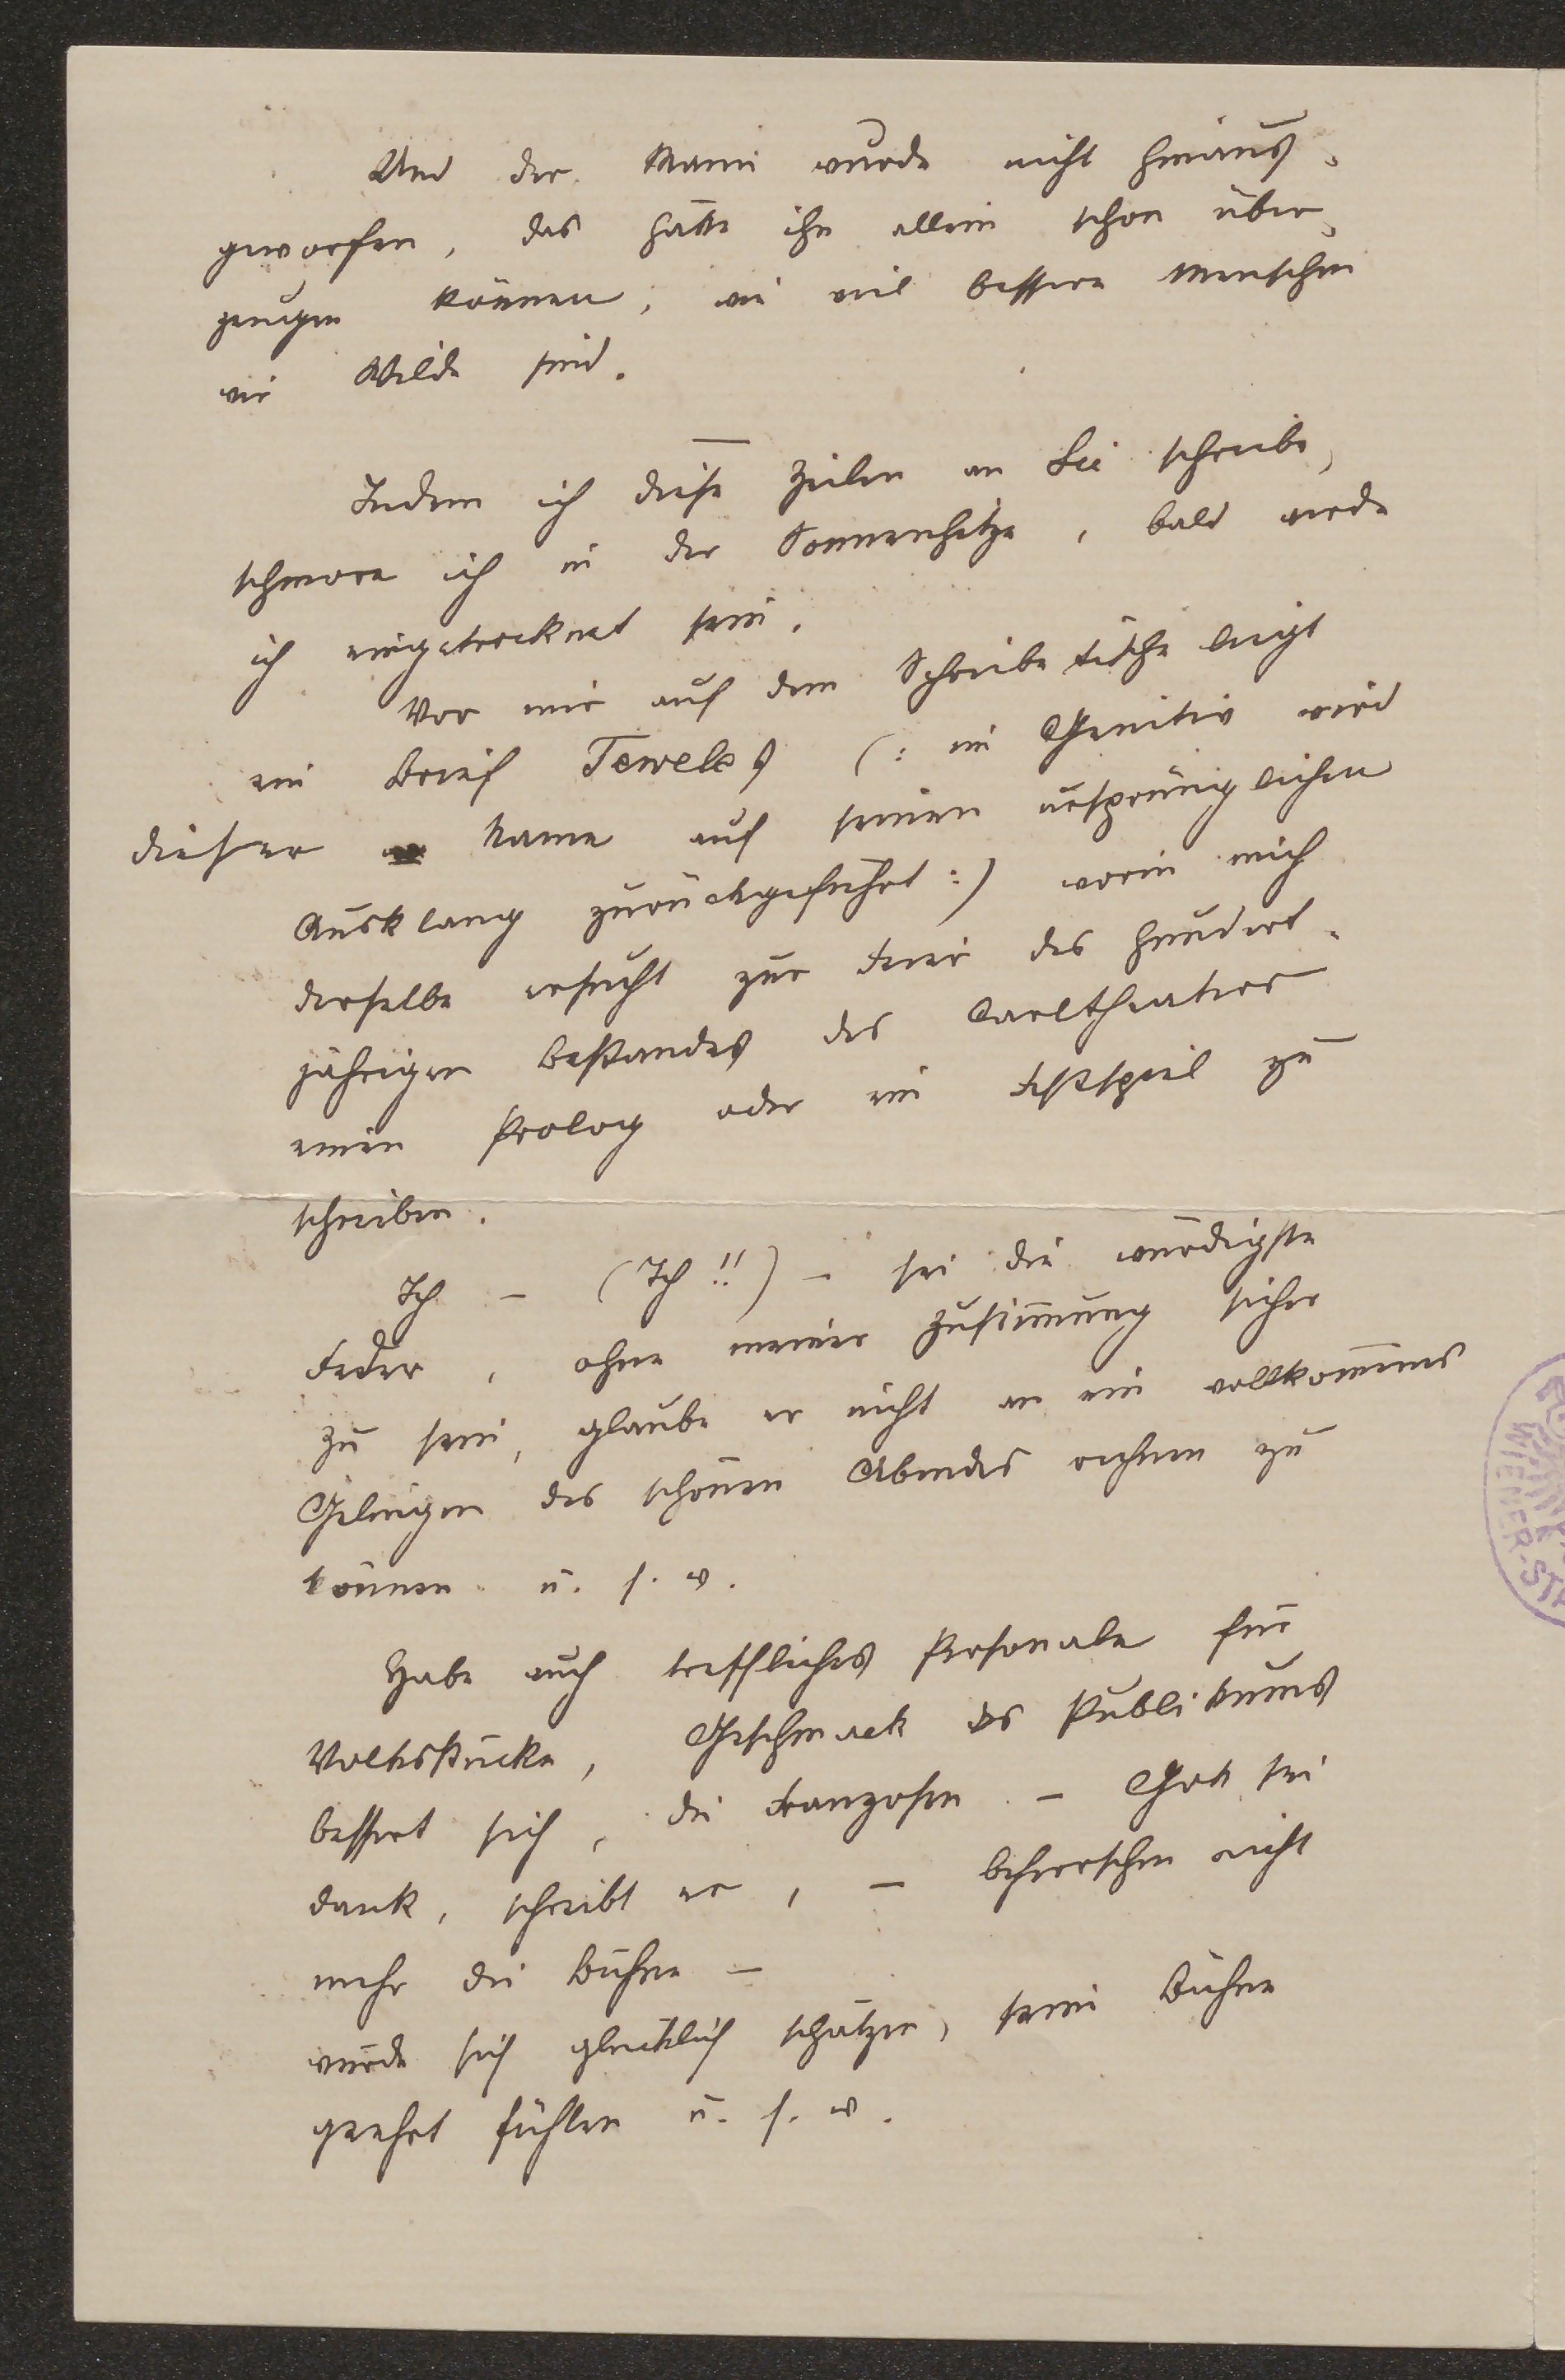 Und der Mann wurde nicht hinaus-
geworfen, das hätte ihn allein schon über-
zeugen können, wie viel bessere Menschen
wir Wilde sind.
Indem ich diese Zeilen an Sie schreibe,
schmore ich in der Sonnenhitze, bald werde
ich eingetrocknet sein.
Vor mir auf dem Schreibetische liegt
ein Brief Teweles (: im Genitiv wird
dieser Name auf seinen ursprünglichen
Ausklang zurückgeführt :) worin mich
derselbe ersucht zur Feier des hundert-
jährigen Bestandes des Carltheaters
einen Prolog oder ein Festspiel zu
schreiben.
Ich – (Ich!!) – sei die würdigste
Feder, ohne meiner Zustimmung sicher
zu sein, glaube er nicht an ein vollkommenes
Gelingen des schönen Abendes rechnen zu
können u. s. w.
Habe auch treffliches Personale für
Volksstücke, Geschmack des Publikums
bessert sich, die Franzosen – Gott sei
dank, schreibt er, – beherrschen nicht
mehr die Bühne –
würde sich glücklich schätzen, seine Bühne
geehrt fühlen u. s. w.
WIENER-ST